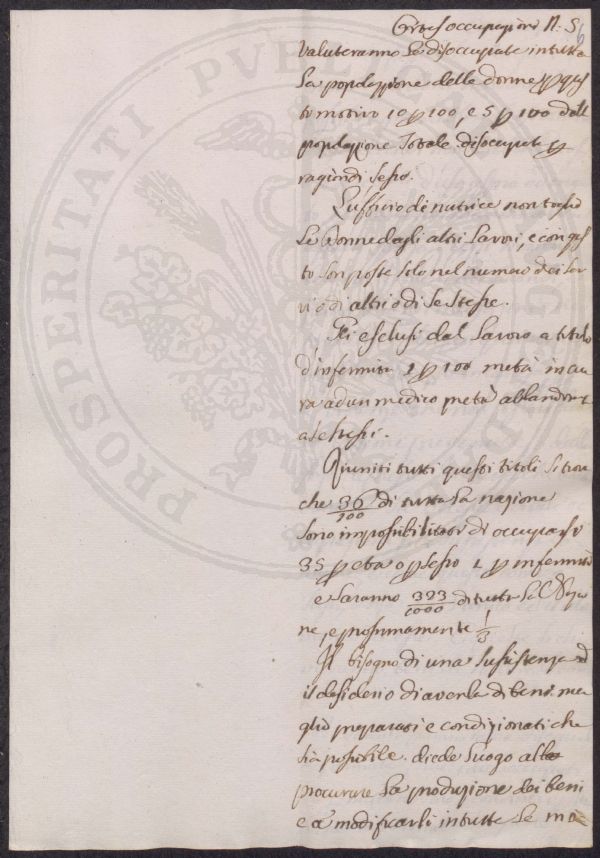 occupazioni N. 5
6
Valuteranno le disoccupate in tutta
la popolazione delle donne p ques
to motivo 10 p 100, e 5 p 100 dell
popolazione totale disoccupat p
ragion di sesso.
L'ufficio di nutrice non toglie
le donne dagli altri lavori, e con ques
to son poste solo nel numero dei ser
vi o di altri o di se stesse.
Gli esclusi dal lavoro a titolo
d'infermità 1 p 100 metà in cu
ra ad un medico metà abbandonat
a se stessi.
Riuniti tutti questi titoli si trova
che 36/100 di tutta la nazione
sono impossibilitati di occuparsi
35 p età o p sesso 1 p infermità
e saranno 323/1000 di tutte le
ne, e prossimamente 1/3
Il bisogno di una sussistenza ed
il desiderio di averla di beni me
glio preparati e condizionati che
sia possibile. diede luogo alla
procurare la produzione dei beni
e a modificarli in tutte le mo
PROSPERITATI PVBLICAE